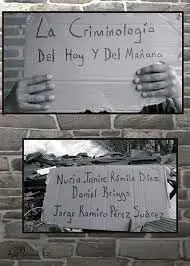 La Criminología
Del Hoy Y Del Mañana
Nuria Janire Rámila Díaz
Daniel Briggs
Jorge Ramiro Pérez Suárez